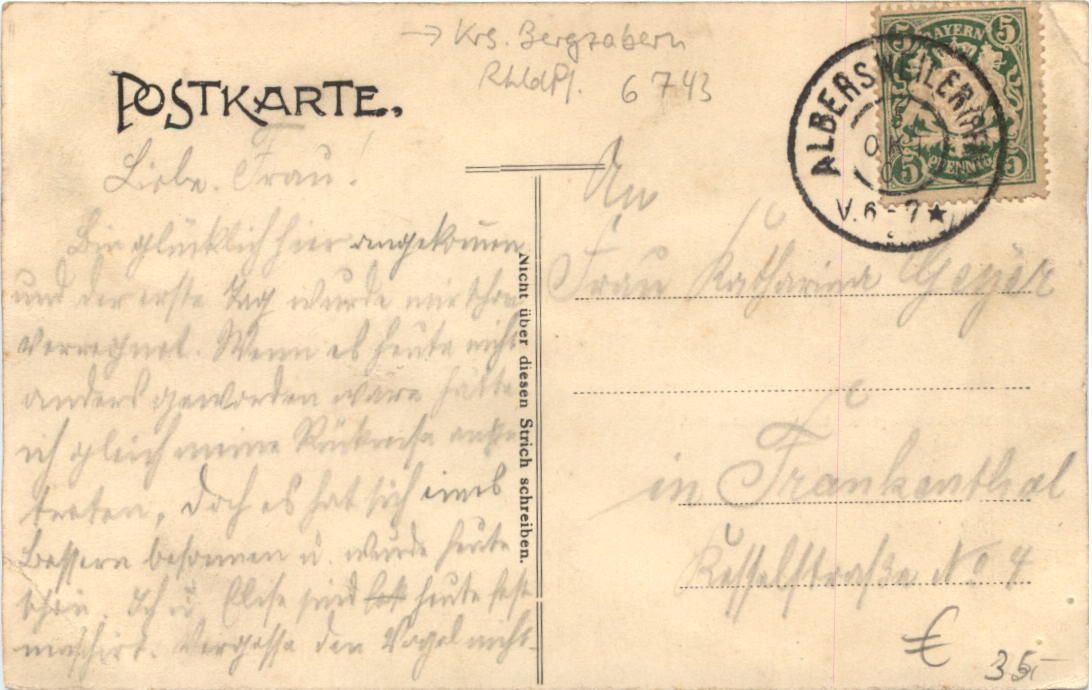 → Krs. Bergzabern
Rhldpf. 6743
POSTKARTE.
5 BAYERN 5
5 PFENNIG 5
ALBERSWEILER
V. 6-7 ★
Liebe Frau!
Bin glücklich hier angekommen
und der erste Tag wurde mir schon
verregnet. Wenn es heute nicht
anders geworden wäre hätte
ich gleich meine Rückreise ange
treten, doch es hat sich eines
Bessern besonnen u. wurde heute
schön. Ich u. Elise sind heute fest
maschirt. Vergesse den Vogel nicht.
Nicht über diesen Strich schreiben.
An
Frau Katharina Geyer
in Frankenthal
Kesselstraße No 4
€ 35,-